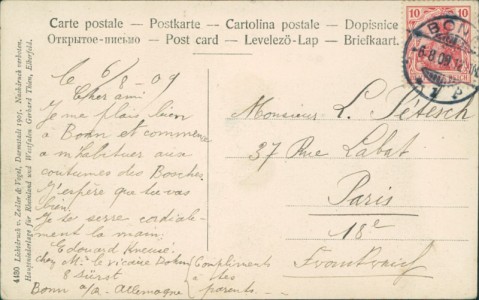 Carte postale – Postkarte – Cartolina postale – Dopisnice
Открытое-письмо – Post card – Levelező-Lap – Briefkaart.
4480 Lichtdruck v. Zedler & Vogel, Darmstadt 1905. Nachdruck verboten.
Hauptniederlage für Rheinland und Westfalen Gerhard Thien, Elberfeld.
10
BONN
6.8.09
1
Le 6/8-09
Cher ami
Je me plais bien
à Bonn et commence
a m'habituer aux
coutumes des Bosches.
J'espère que tu vas
bien.
Je te serre cordiale-
ment la main.
Edouard
chez Mr le vicaire
8
Bonn a/R - Allemagne
Compliments
à tes
parents.
Monsieur L.
37 Rue Labat
Paris
18e
Frankreich